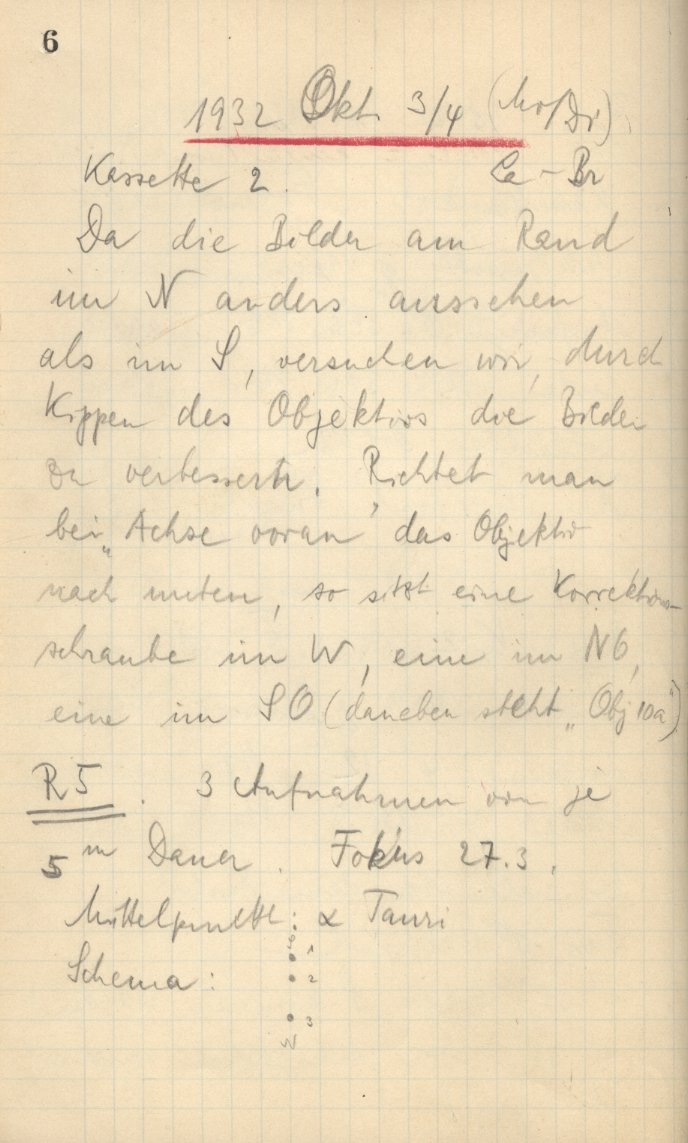 6
1932 Okt. 3/4 (Mo/Di)
Kassette 2. Ca-Br
Da die Bilder am Rand
im N anders aussehen
als im S, versuchen wir, durch
Kippen des Objektivs die Bilder
zu verbessern. Richtet man
bei "Achse voran" das Objektiv
nach unten, so sitzt eine Korrektions-
schraube im W, eine im NO,
eine im SO (daneben steht "Obj 10a")
R 5. 3 Aufnahmen von je
5 m Dauer. Fokus 27.3.
Mittelpunkt: α Tauri
Schema:
1
2
3